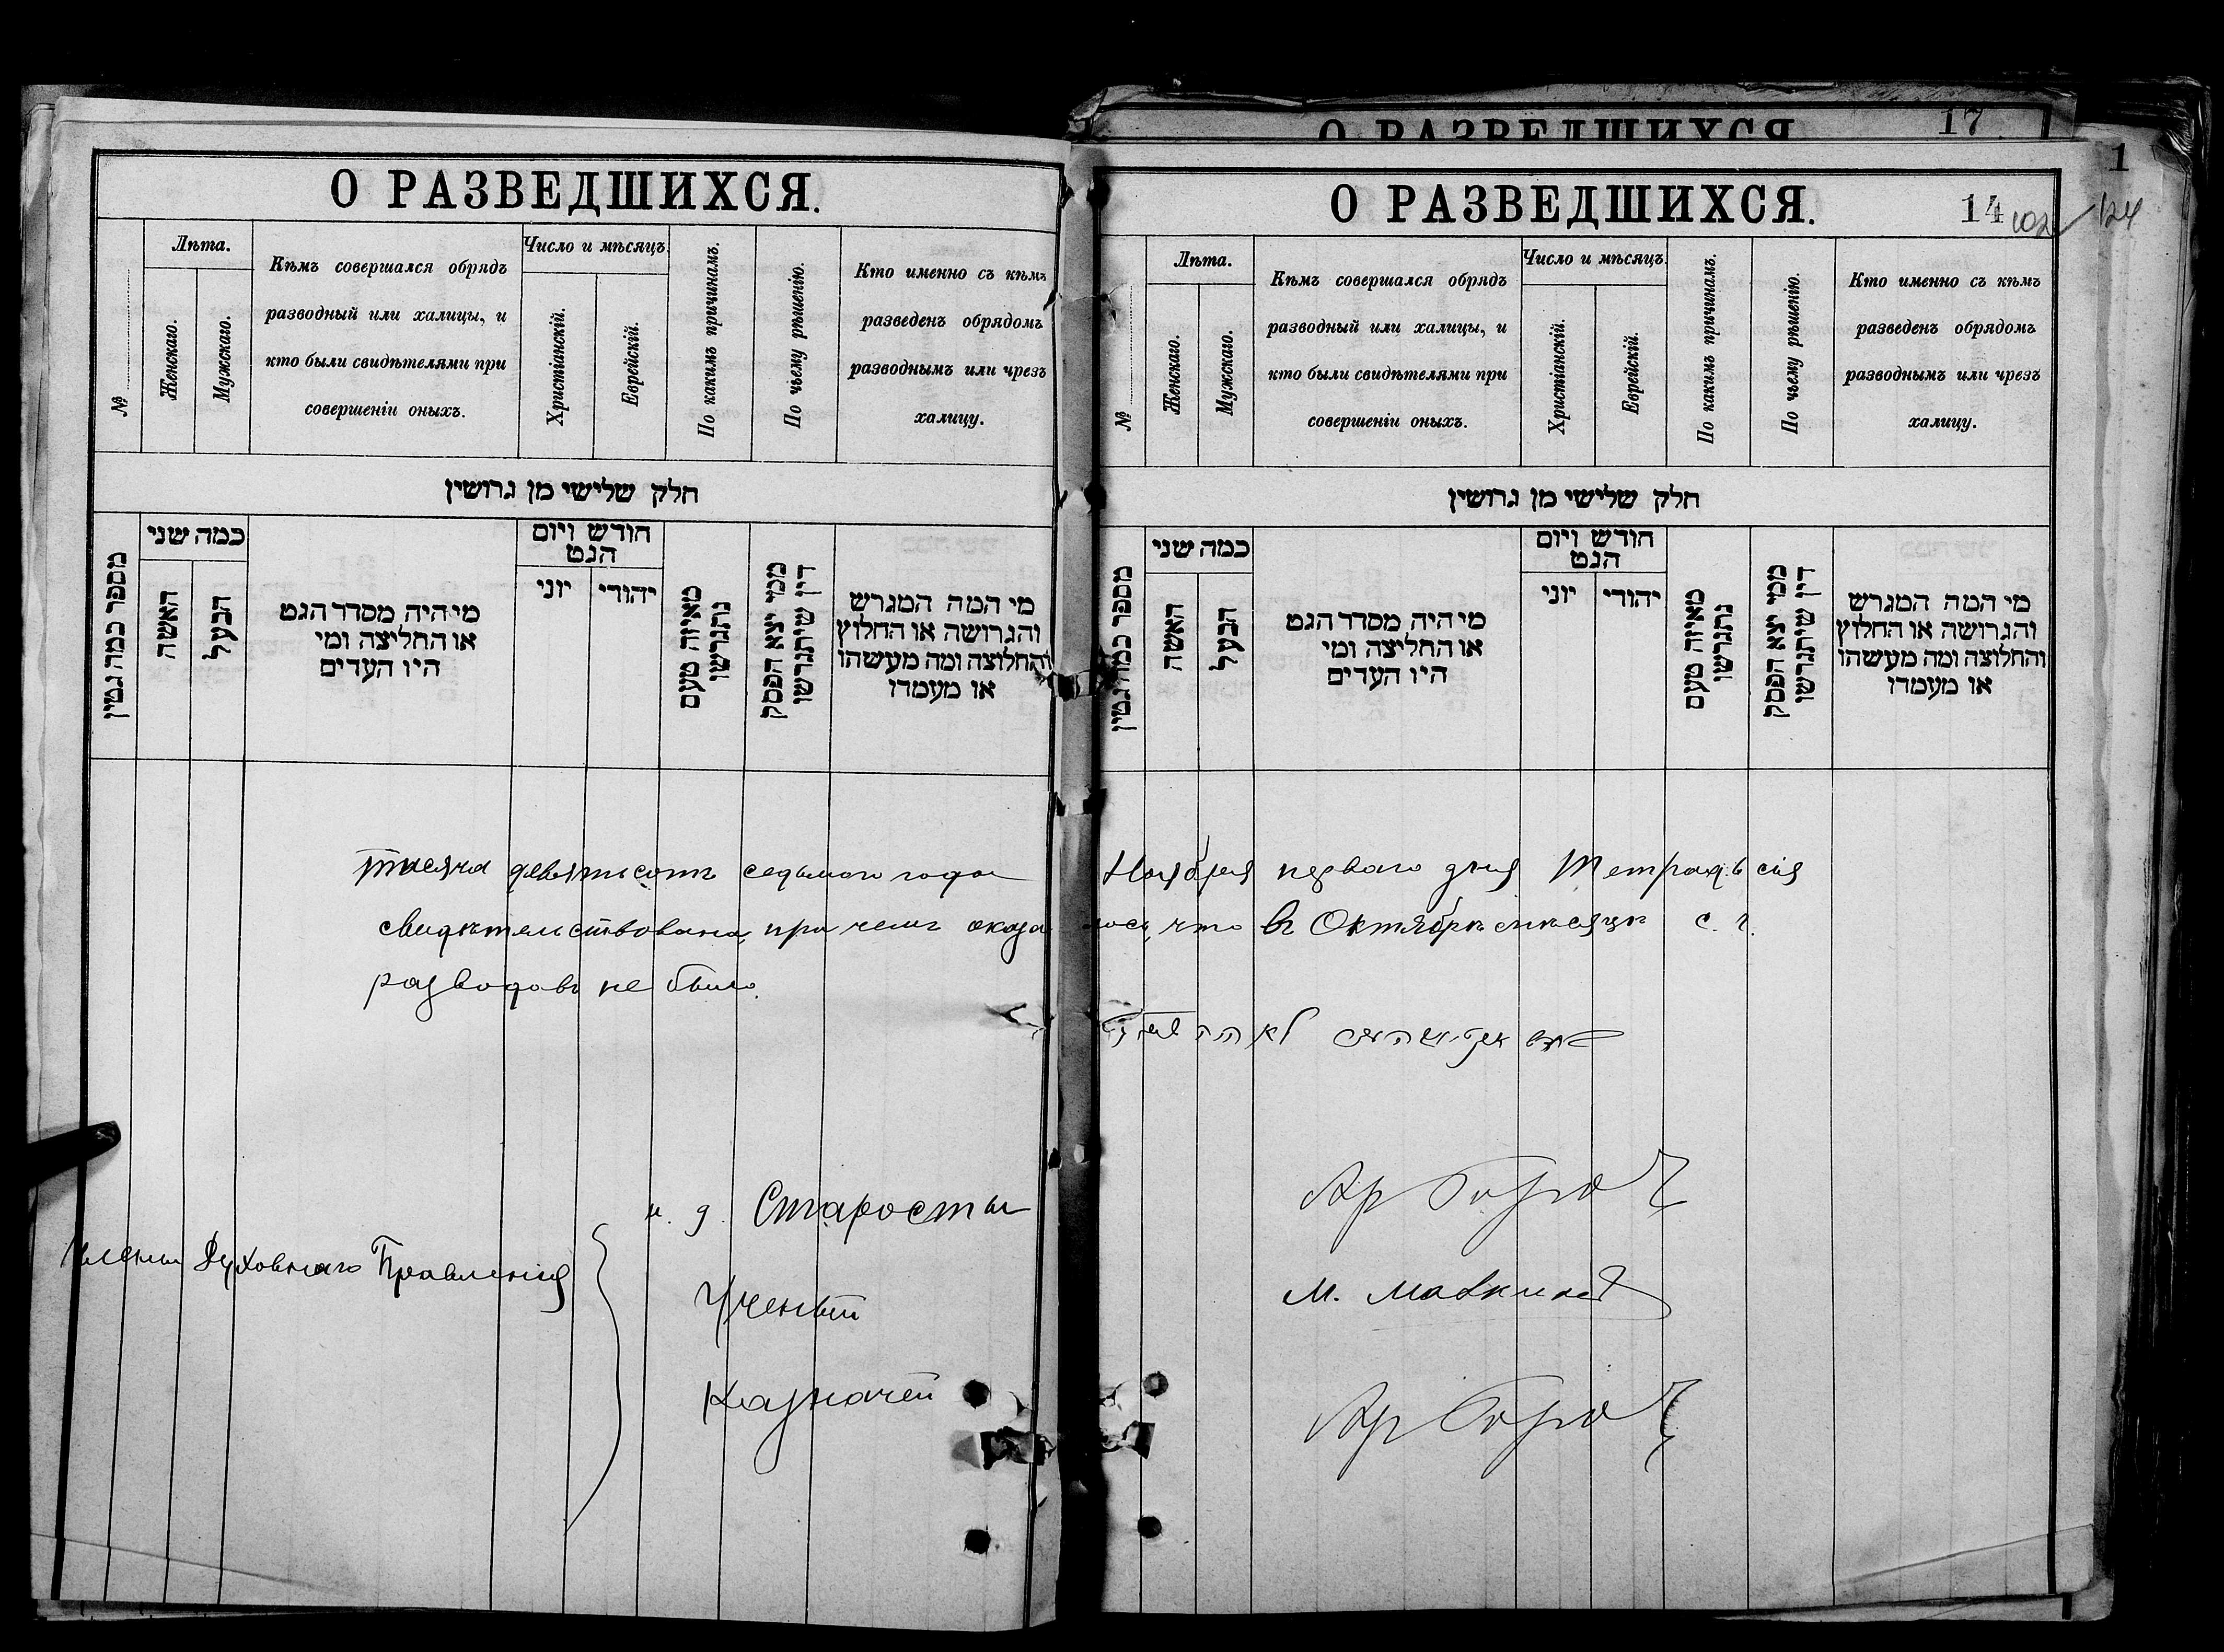 О РАЗВЕДШИХСЯ.
№
Лѣта.
Женскаго.
Мужскаго.
Кѣмъ совершался обрядъ
разводный или халицы, и
кто были свидѣтелями при
совершеніи оныхъ.
Число и мѣсяцъ.
Христіанскій.
Еврейскій.
По какимъ причинамъ.
По чьему рѣшенію.
Кто именно съ кѣмъ
разведенъ обрядомъ
разводнымъ или чрезъ
халицу.
חלק שלישי מן גרושין
מספר כמה גטין
כמה שני
האשה
הבעל
מי היה מסדר הגט
או החליצה ומי
היו העדים
חודש ויום
הגט
יוני
יהודי
מאיזה טעם
נתגרשו
ממי יצא הפסק
דין שיתגרשו
מי המה המגרש
והגרושה או החלוץ
והחלוצה ומה מעשהו
או מעמדו
О РАЗВЕДШИХСЯ
17
1
О РАЗВЕДШИХСЯ.
14
102
124
№
Лѣта.
Женскаго.
Мужскаго.
Кѣмъ совершался обрядъ
разводный или халицы, и
кто были свидѣтелями при
совершеніи оныхъ.
Число и мѣсяцъ.
Христіанскій.
Еврейскій.
По какимъ причинамъ.
По чьему рѣшенію.
Кто именно съ кѣмъ
разведенъ обрядомъ
разводнымъ или чрезъ
халицу.
חלק שלישי מן גרושין
מספר כמה גטין
כמה שני
האשה
הבעל
מי היה מסדר הגט
או החליצה ומי
היו העדים
חודש ויום
הגט
יוני
יהודי
מאיזה טעם
נתגרשו
ממי יצא הפסק
דין שיתגרשו
מי המה המגרש
והגרושה או החלוץ
והחלוצה ומה מעשהו
או מעמדו
тысяча девятьсотъ седьмого года Ноября перваго дня Тетрадь сія
свидѣтельствована, при чемъ оказалось, что въ Октябрѣ мѣсяцѣ с. г.
разводовъ не было.
Члены Духовнаго Правленія
и. д. Старосты
Ученый
Казначей